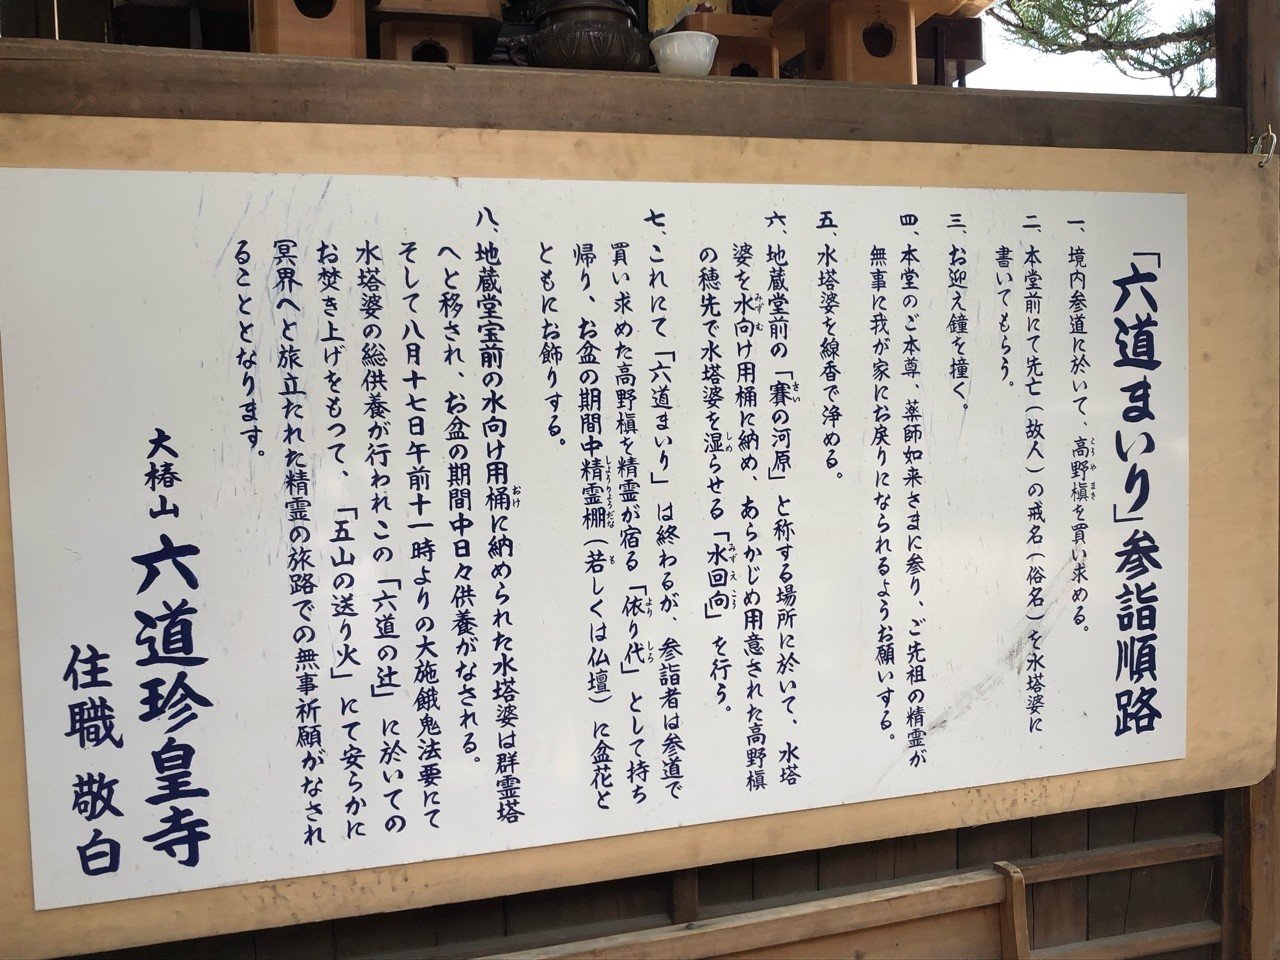 「六道まいり」参詣順路
一、境内参道に於いて、高野槇を買い求める。
二、本堂前にて先亡（故人）の戒名（俗名）を水塔婆に
書いてもらう。
三、お迎え鐘を撞く。
四、本堂のご本尊、薬師如来さまに参り、ご先祖の精霊が
無事に我が家にお戻りになられるようお願いする。
五、水塔婆を線香で浄める。
六、地蔵堂前の「賽の河原」と称する場所に於いて、水塔
婆を水向け用桶に納め、あらかじめ用意された高野槇
の穂先で水塔婆を湿らせる「水回向」を行う。
七、これにて「六道まいり」は終わるが、参詣者は参道で
買い求めた高野槇を精霊が宿る「依り代」として持ち
帰り、お盆の期間中精霊棚（若しくは仏壇）に盆花と
ともにお飾りする。
八、地蔵堂宝前の水向け用桶に納められた水塔婆は群霊塔
へと移され、お盆の期間中日々供養がなされる。
そして八月十七日午前十一時よりの大施餓鬼法要にて
水塔婆の総供養が行われこの「六道の辻」に於いての
お焚き上げをもつて、「五山の送り火」にて安らかに
冥界へと旅立たれた精霊の旅路での無事祈願がなされ
ることとなります。
大椿山 六道珍皇寺
住職 敬白